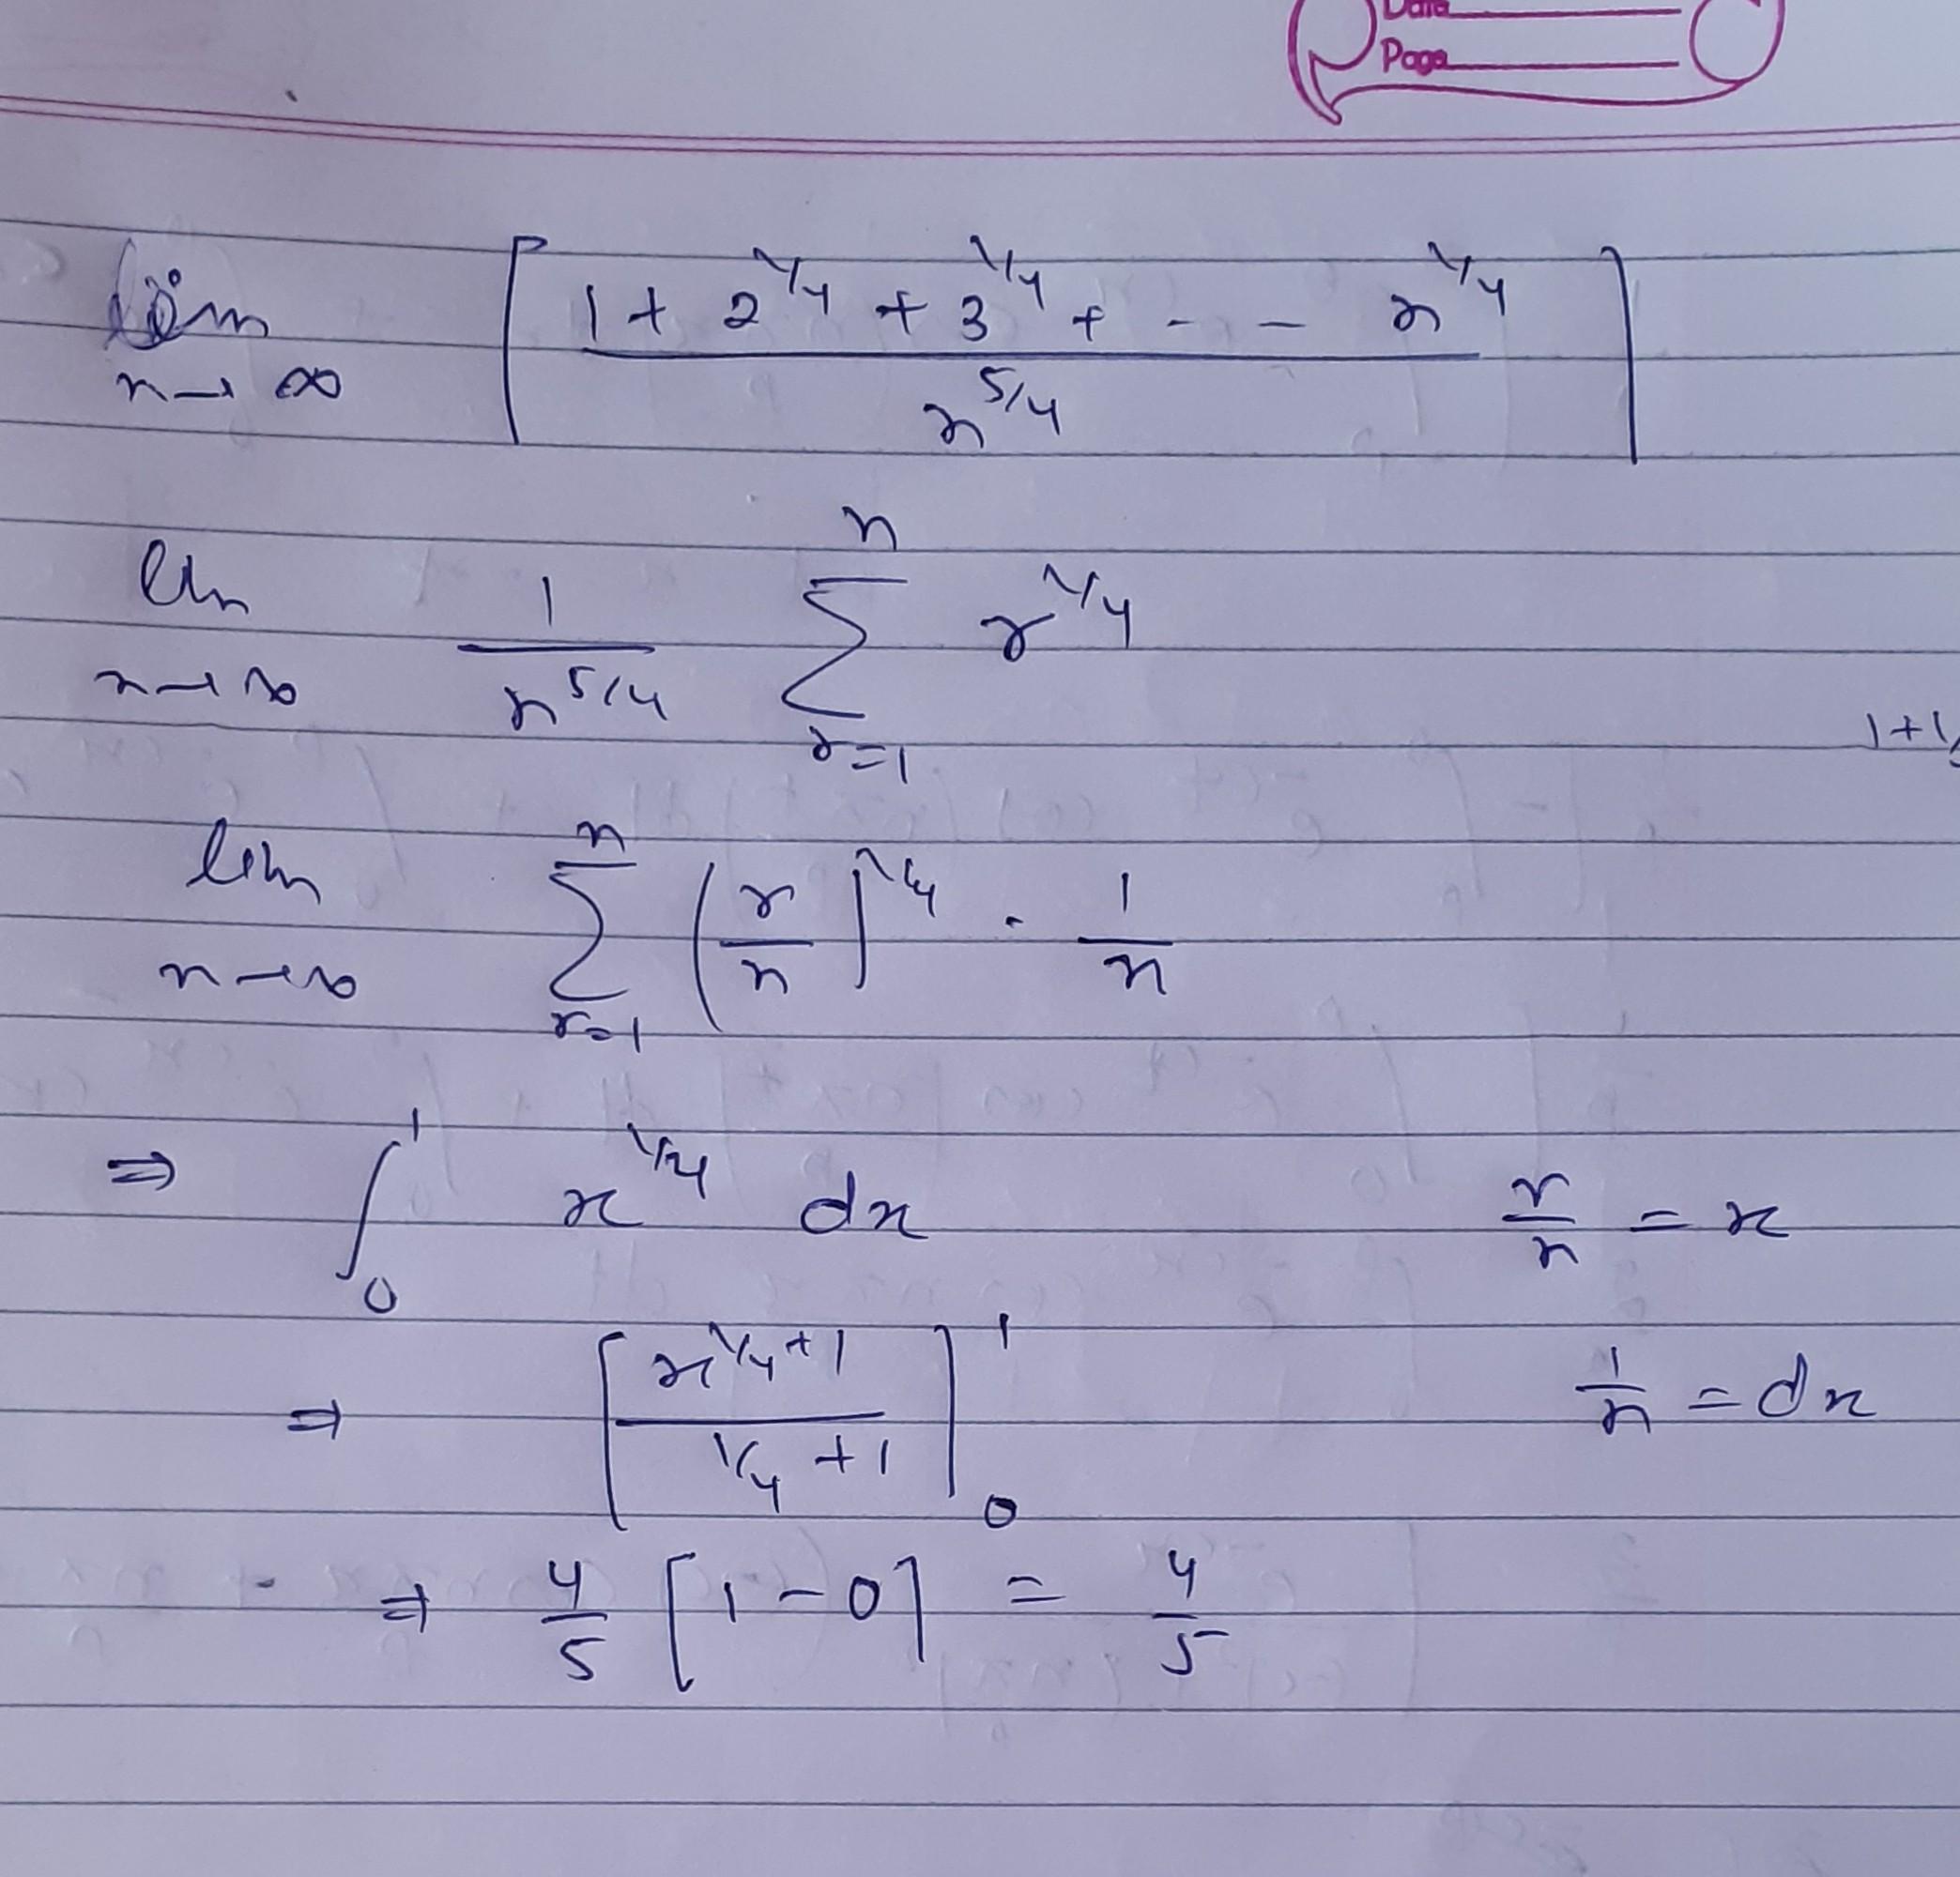 Date
Page
lim n→∞ [ (1 + 2^1/4 + 3^1/4 + - - n^1/4) / n^5/4 ]
lim n→∞ 1/n^5/4 ∑_{r=1}^{n} r^1/4
1+1/
lim n→∞ ∑_{r=1}^{n} (r/n)^1/4 · 1/n
⇒ ∫_0^1 x^1/4 dx r/n = x
⇒ [ x^(1/4+1) / (1/4+1) ]_0^1 1/n = dx
⇒ 4/5 [1-0] = 4/5